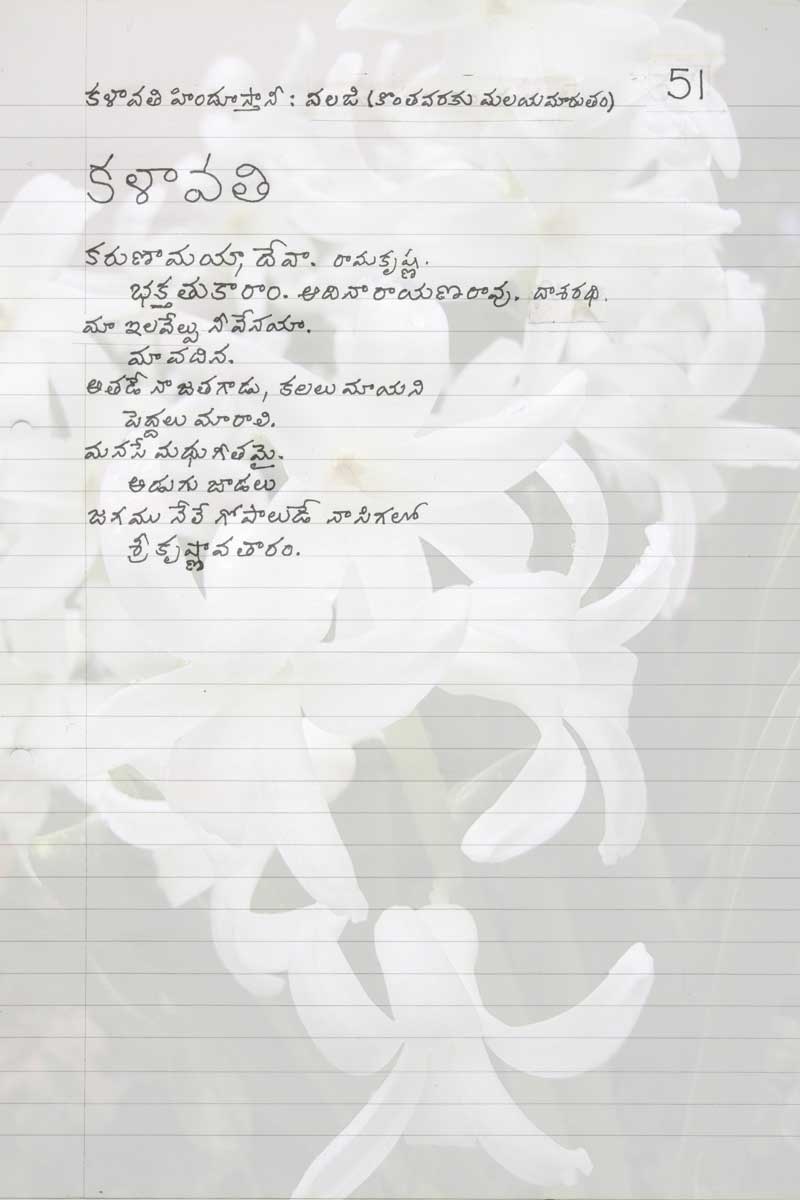 51
కళావతి హిందూస్తానీ : వలజి (కొంతవరకు మలయమారుతం)
కళావతి
కరుణామయా, దేవా. రామకృష్ణ.
భక్త తుకారాం. ఆదినారాయణరావు. దాశరథి.
మా ఇలవేల్పు నీవేనయా.
మా వదిన.
అతడే నా జతగాడు, కలలు మాయని
పెద్దలు మారాలి.
మనసే మధుగీతమై.
అడుగు జాడలు
జగము నేలే గోపాలుడే నా సిగలో
శ్రీ కృష్ణావతారం.